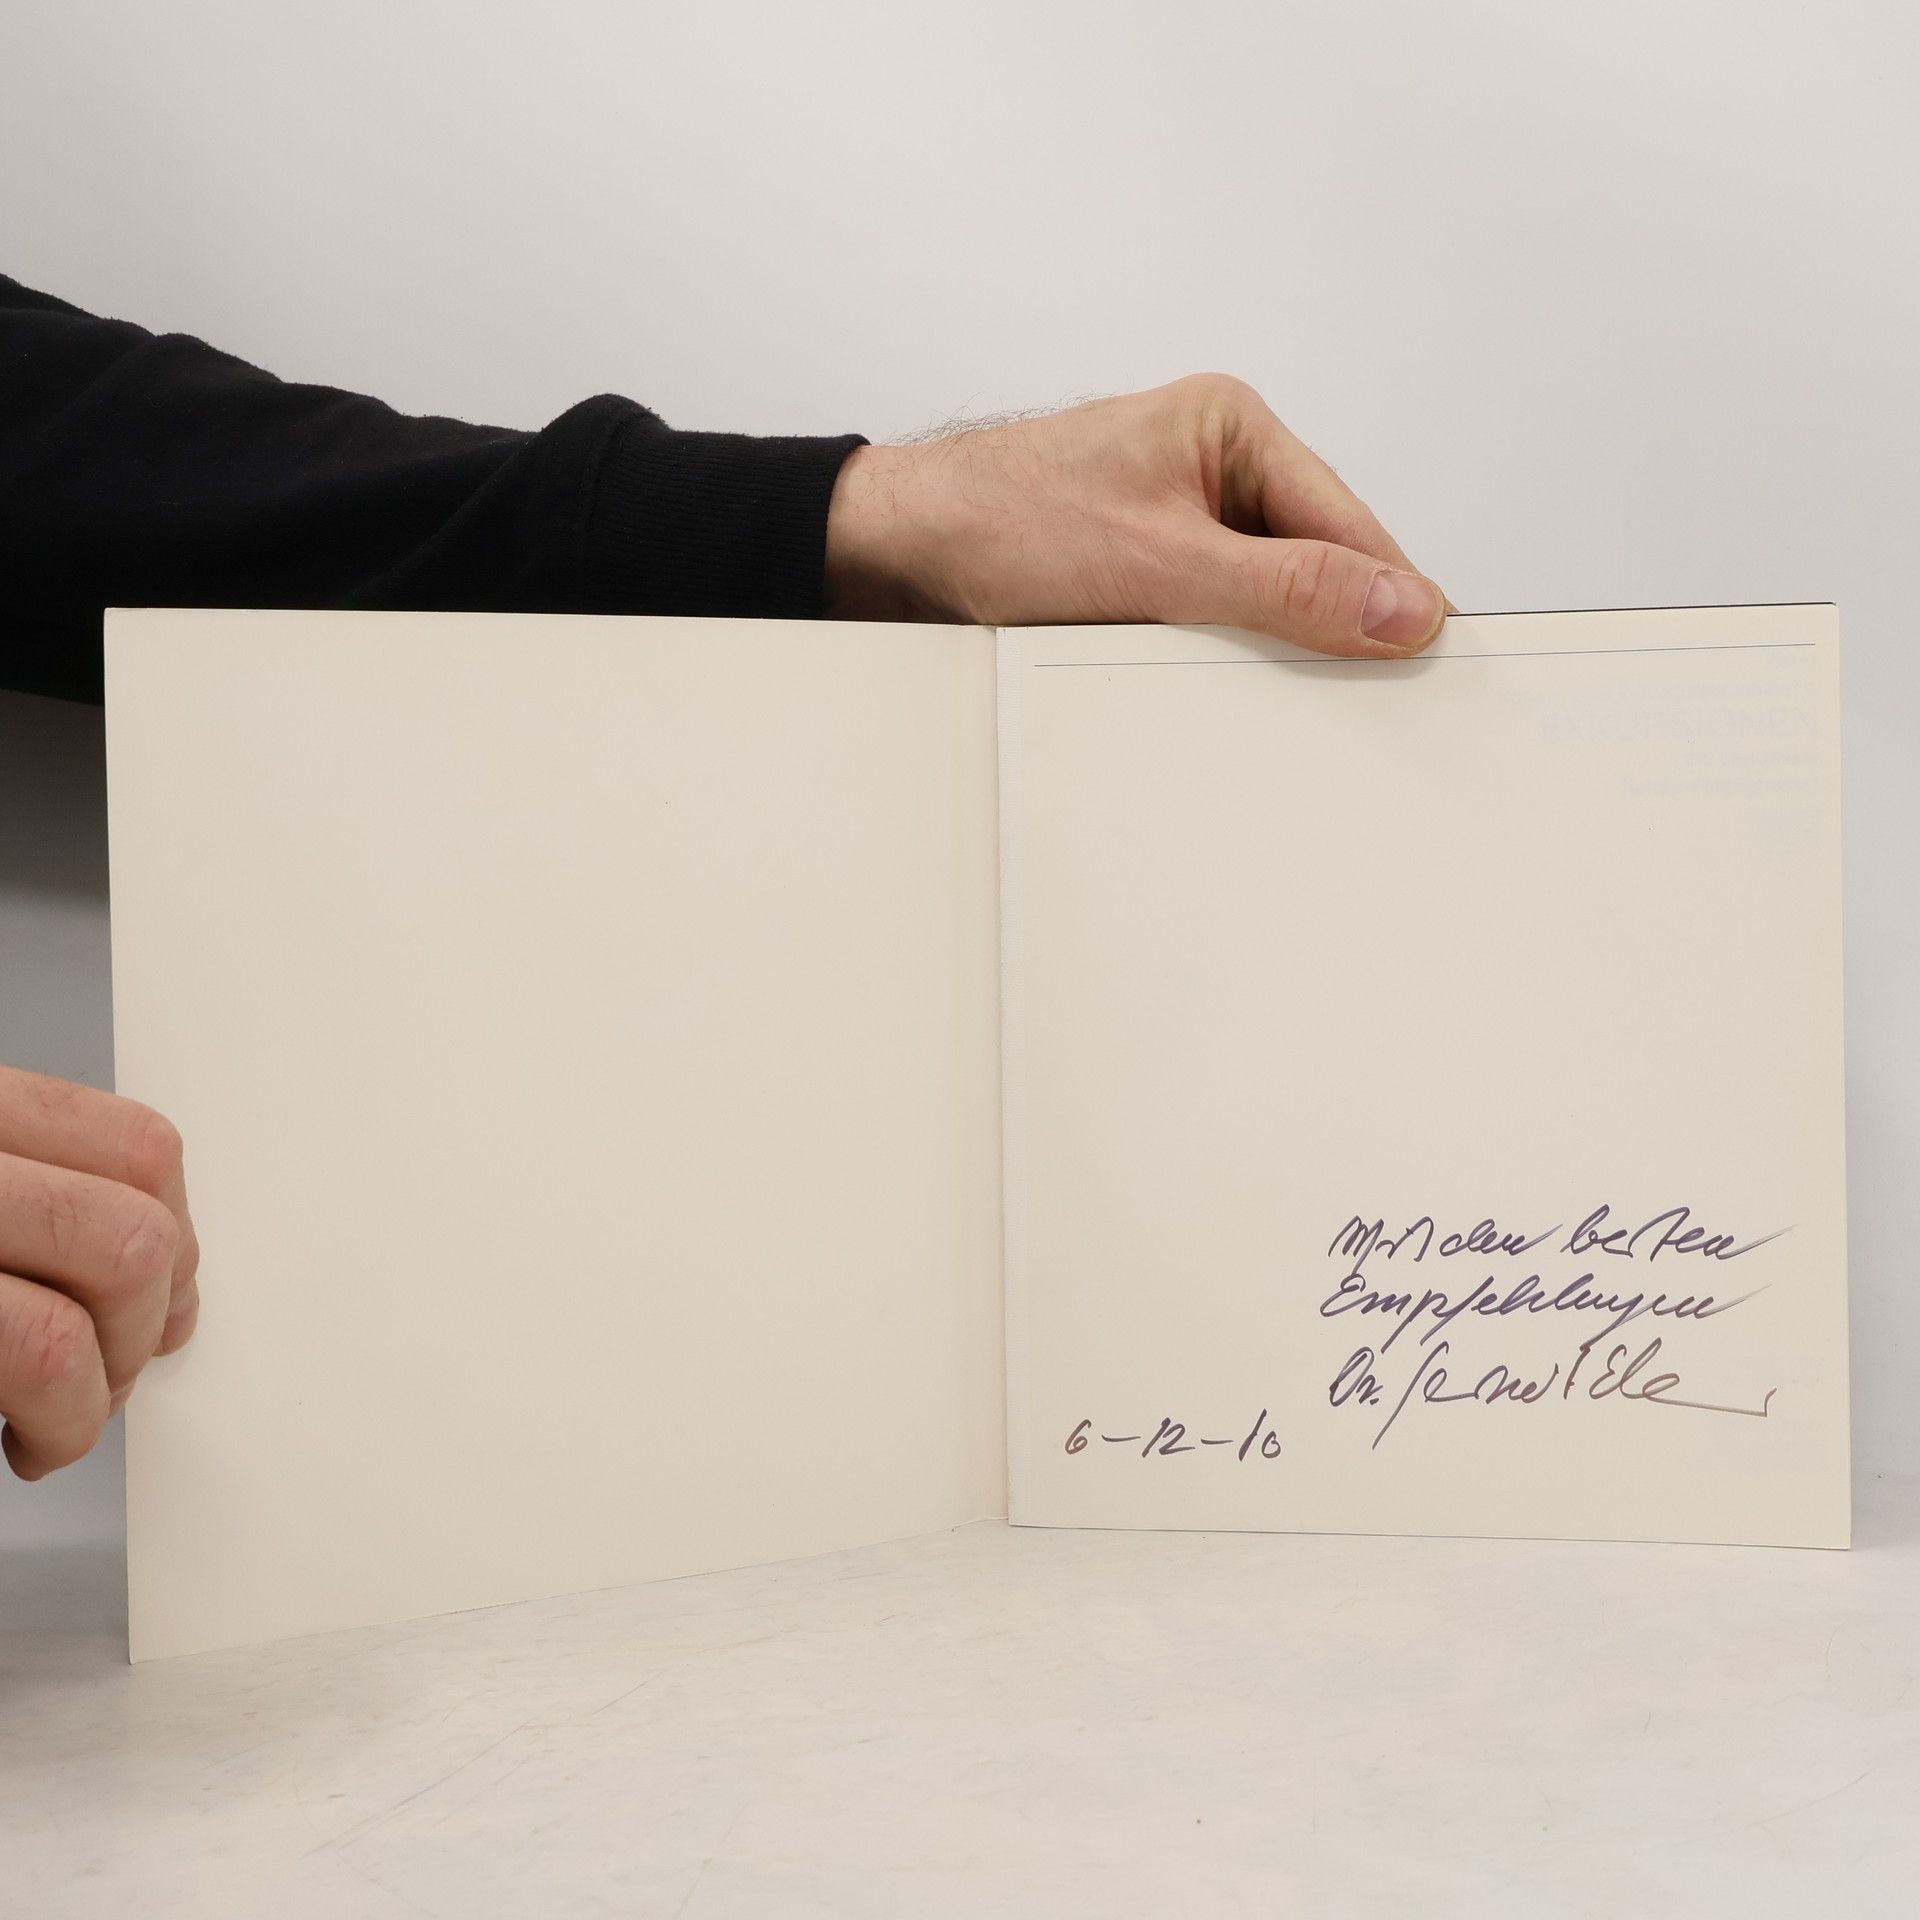 Mit den besten
Empfehlungen
Dr. Gernot
6-12-10